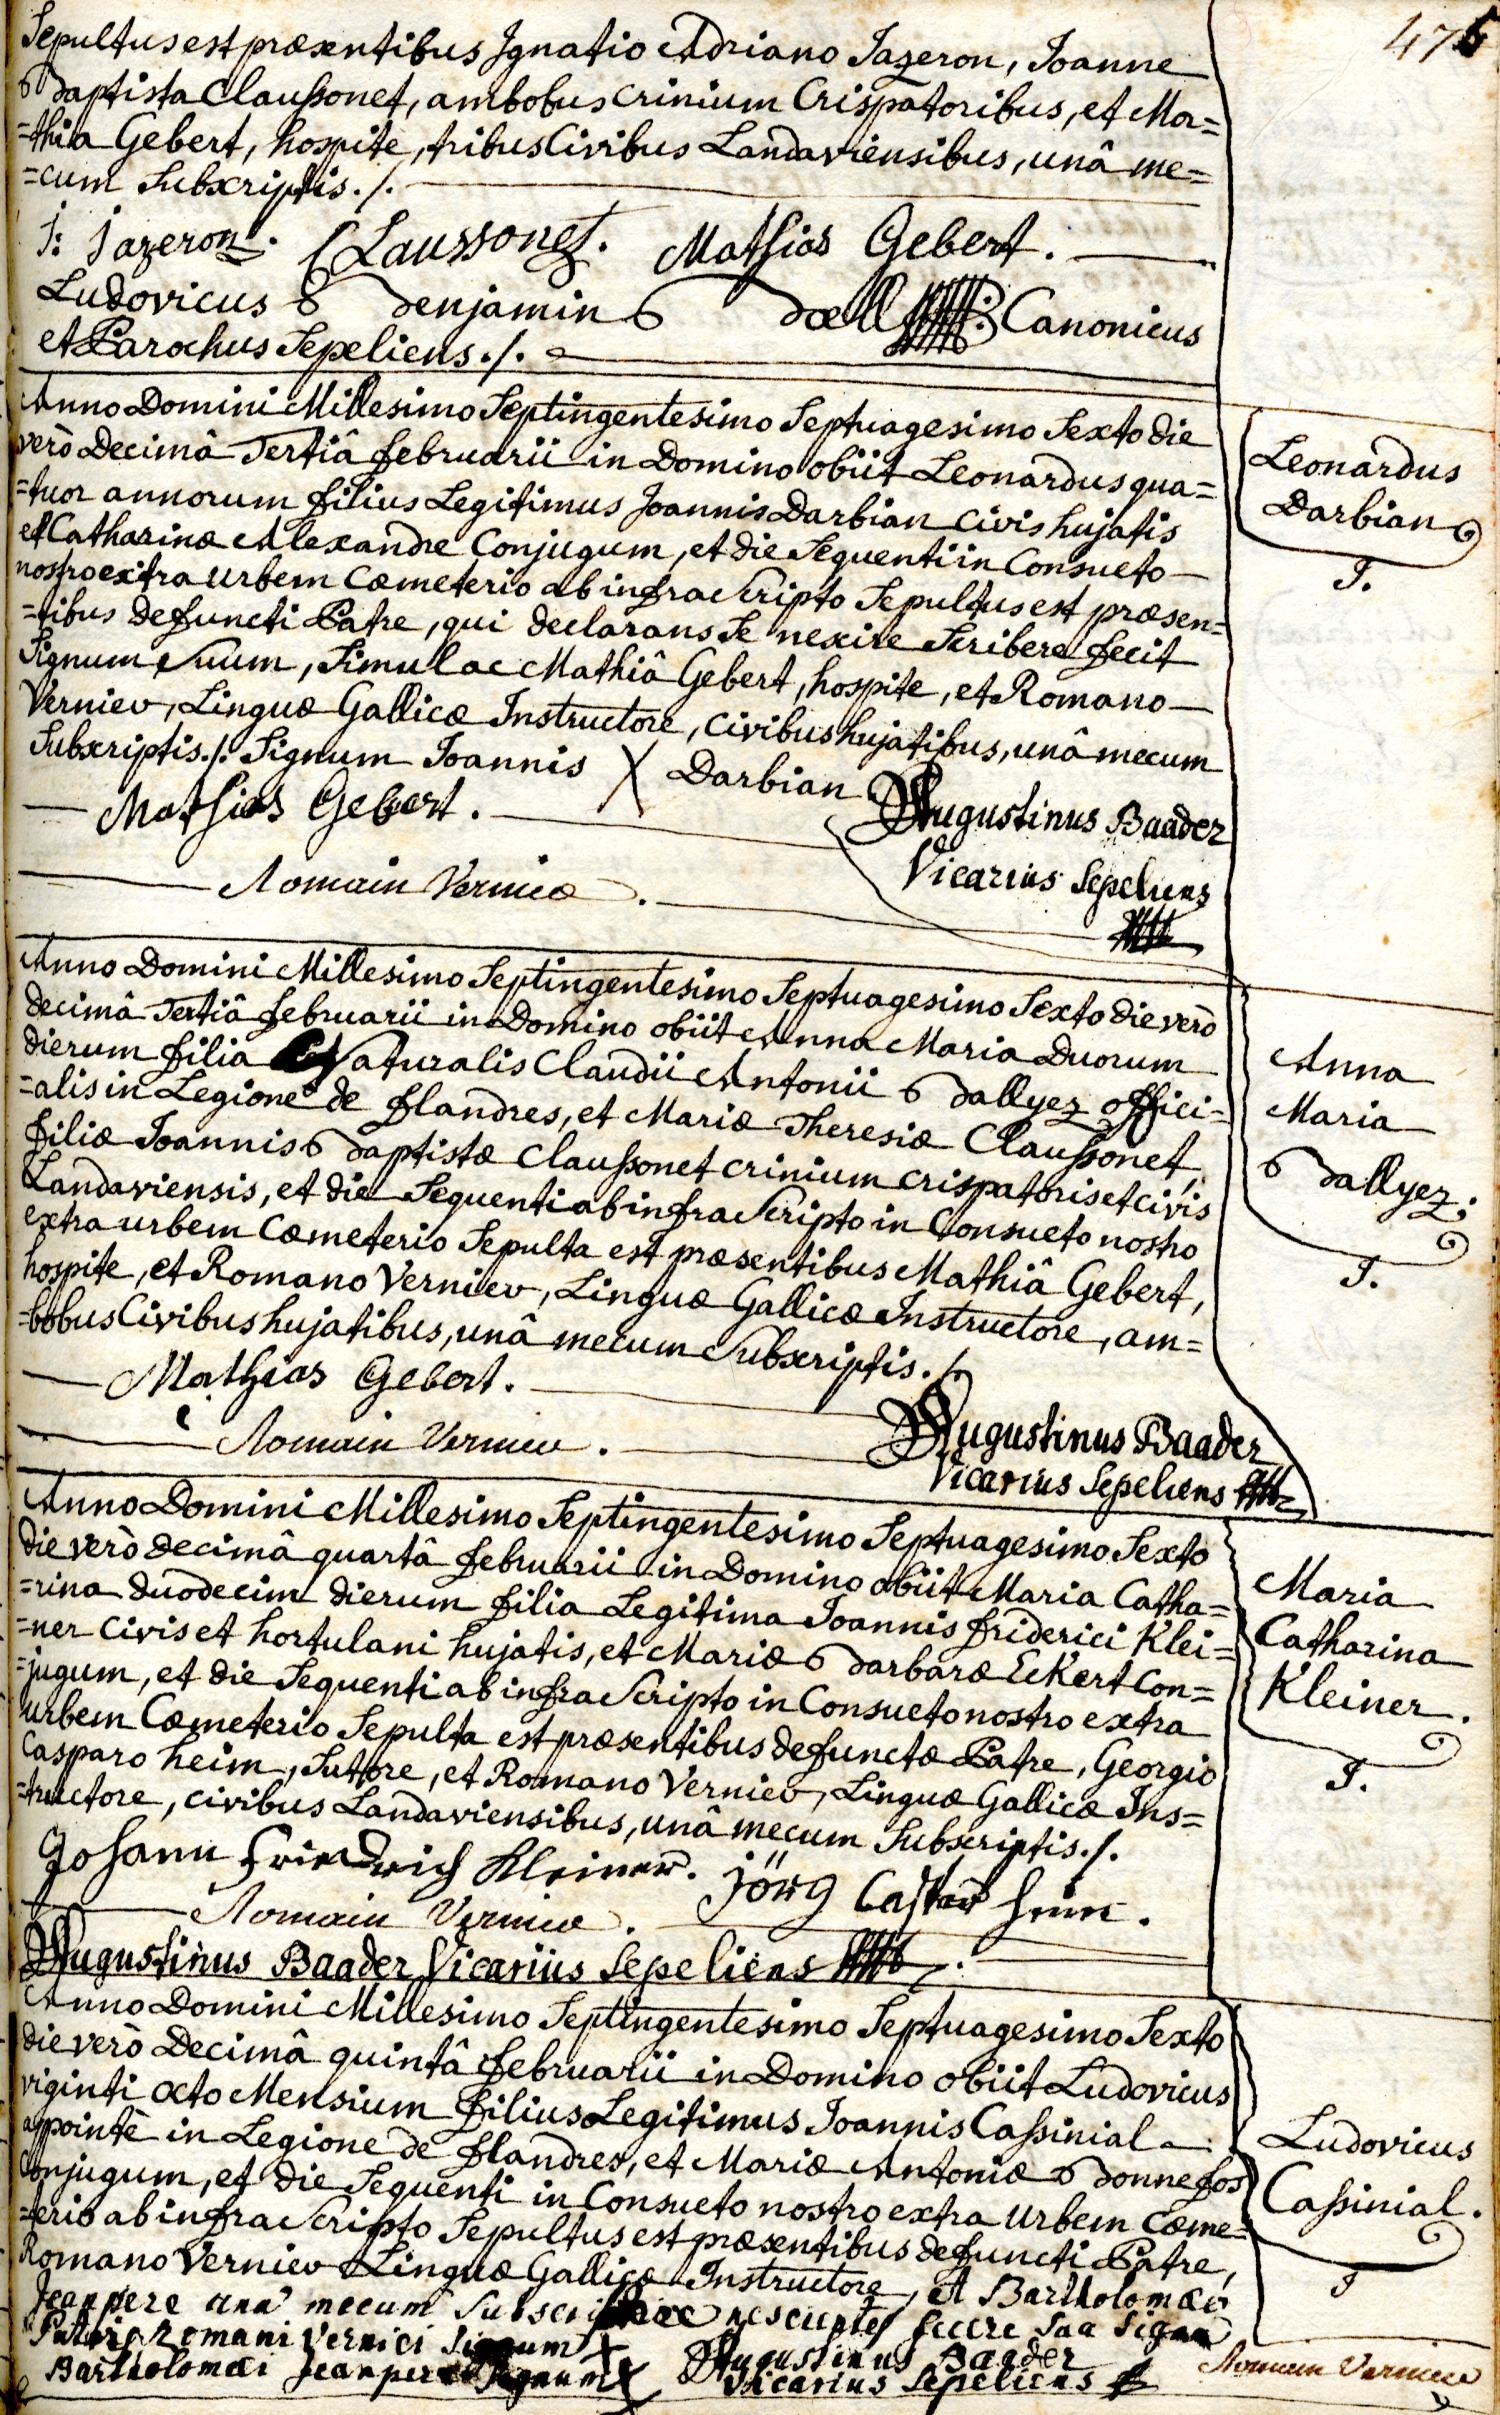 476
Sepultus est præsentibus Ignatio Adriano Jazeron, Joanne
Baptista Claussonet, ambobus crinium Crispatoribus, et Ma=
=thia Gebert, hospite, tribus Civibus Landaviensibus, unâ me=
=cum Subscriptis./.
J: Jazeron. Claussonet. Mathias Gebert.
Ludovicus Benjamin Doell Canonicus
et Parochus Sepeliens./.
Anno Domini Millesimo Septingentesimo Septuagesimo Sexto die
verò Decimâ Tertiâ februarii in Domino obiit Leonardus qua=
=tuor annorum filius Legitimus Joannis Darbian civis hujatis
et Catharinæ Alexandre Conjugum, et die Sequenti in Consueto
nostro extra urbem Cæmeterio ab infra Scripto Sepultus est præsen=
=tibus defuncti Patre, qui declarans Se nescire Scribere fecit
Signum Suum, Simul ac Mathiâ Gebert, hospite, et Romano
Verniev, Linguæ Gallicæ Instructore, civibus hujatibus, unâ mecum
Subscriptis./. Signum Joannis X Darbian
Mathias Gebert. Augustinus Baader
Romain Verniev. Vicarius Sepeliens
Leonardus
Darbian
J.
Anno Domini Millesimo Septingentesimo Septuagesimo Sexto die verò
decimâ Tertiâ februarii in Domino obiit Anna Maria Duorum
dierum filia Naturalis Claudii Antonii Ballyez offici=
=alis in Legione de flandres, et Mariæ Theresiæ Claussonet,
filiæ Joannis Baptistæ Claussonet crinium crispatoris et civis
Landaviensis, et die Sequenti ab infra Scripto in Consueto nostro
extra urbem Cæmeterio Sepulta est præsentibus Mathiâ Gebert,
hospite, et Romano Verniev, Linguæ Gallicæ Instructore, am=
=bobus Civibus hujatibus, unâ mecum Subscriptis./.
Mathias Gebert.
Romain Verniev. Augustinus Baader
Vicarius Sepeliens
Anna
Maria
Ballyez.
J.
Anno Domini Millesimo Septingentesimo Septuagesimo Sexto
die verò decimâ quartâ februarii in Domino obiit Maria Catha=
=rina duodecim dierum filia Legitima Joannis friderici Klei=
=ner civis et hortulani hujatis, et Mariæ Barbaræ Eckert Con=
=jugum, et die Sequenti ab infra Scripto in Consueto nostro extra
urbem Cæmeterio Sepulta est præsentibus defunctæ Patre, Georgio
Casparo heim, Sutore, et Romano Verniev, Linguæ Gallicæ Ins=
=tructore, civibus Landaviensibus, unâ mecum Subscriptis./.
Johann Friedrich Kleiner. Jörg Caspar heim.
Romain Verniev.
Augustinus Baader Vicarius Sepeliens
Maria
Catharina
Kleiner.
J.
Anno Domini Millesimo Septingentesimo Septuagesimo Sexto
die verò Decimâ quintâ februarii in Domino obiit Ludovicus
viginti octo Mensium filius Legitimus Joannis Cassinial
appointé in Legione de flandres, et Mariæ Antoniæ Bonnefos
Conjugum, et die Sequenti in Consueto nostro extra urbem Cæme=
=terio ab infra Scripto Sepultus est præsentibus defuncti Patre,
Romano Verniev Linguæ Gallicæ Instructore, et Bartholomæo
Jeanpere unâ mecum nescientes fecere Sua Signa
Patris Romani Vernici Signum X Augustinus Baader
Bartholomæi Jeanpere Signum X Vicarius Sepeliens
Ludovicus
Cassinial.
J
Romain Verniev